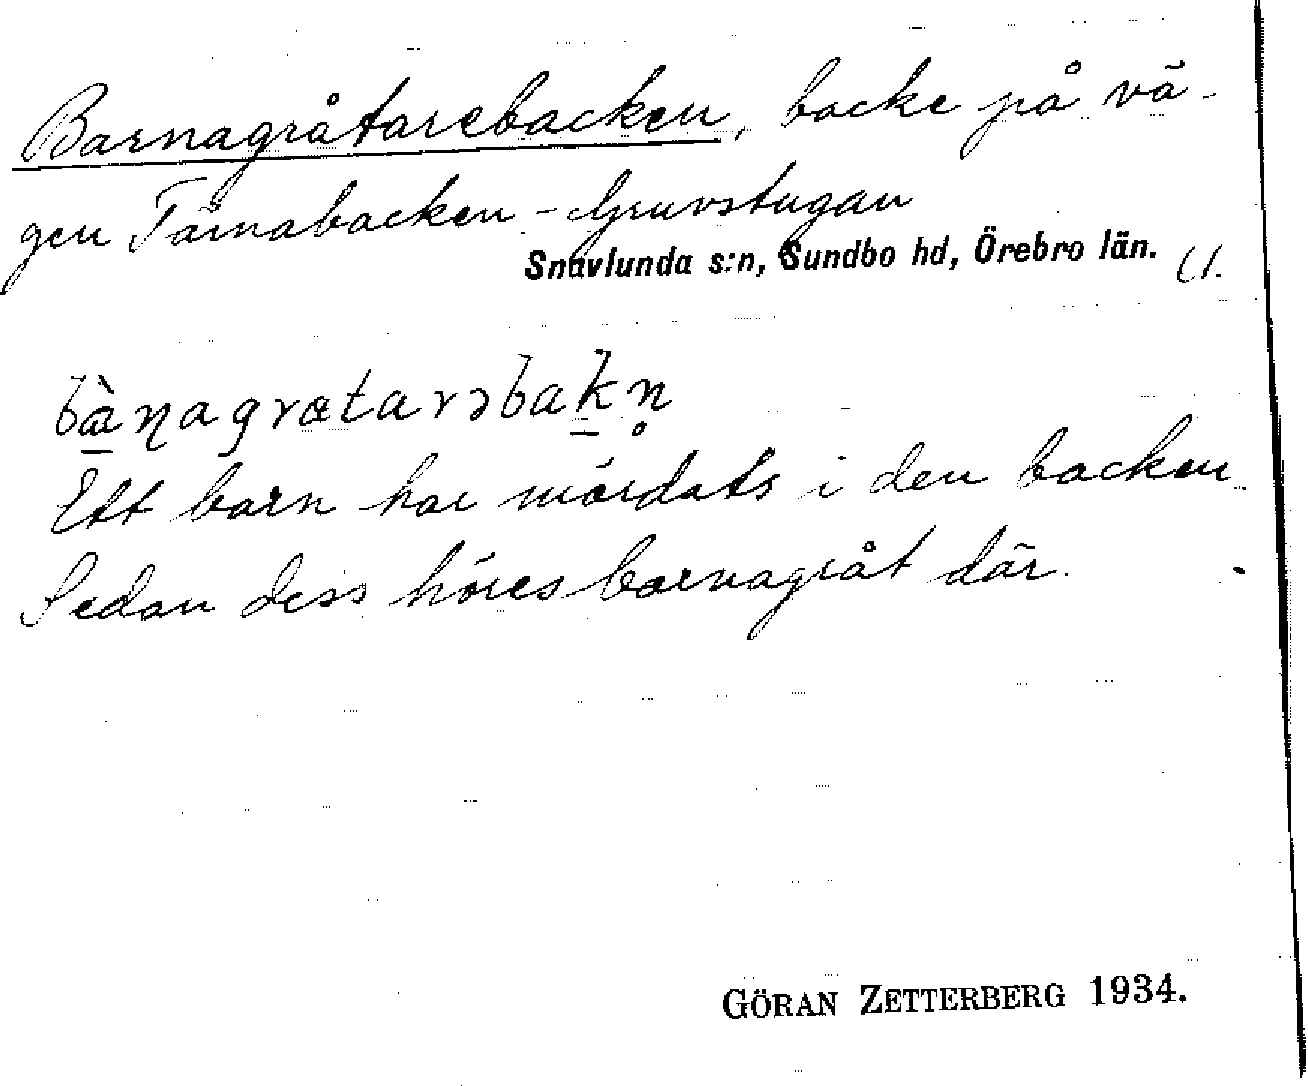 Barnagråtarebacken, backe på vä-
gen Tärnabacken - Gruvstugan
Snavlunda s:n, Sundbo hd, Örebro län. U.
bànagratarɔbakn̥
Ett barn har mördats i den backen
Sedan dess höres barnagråt där.
GÖRAN ZETTERBERG 1934.